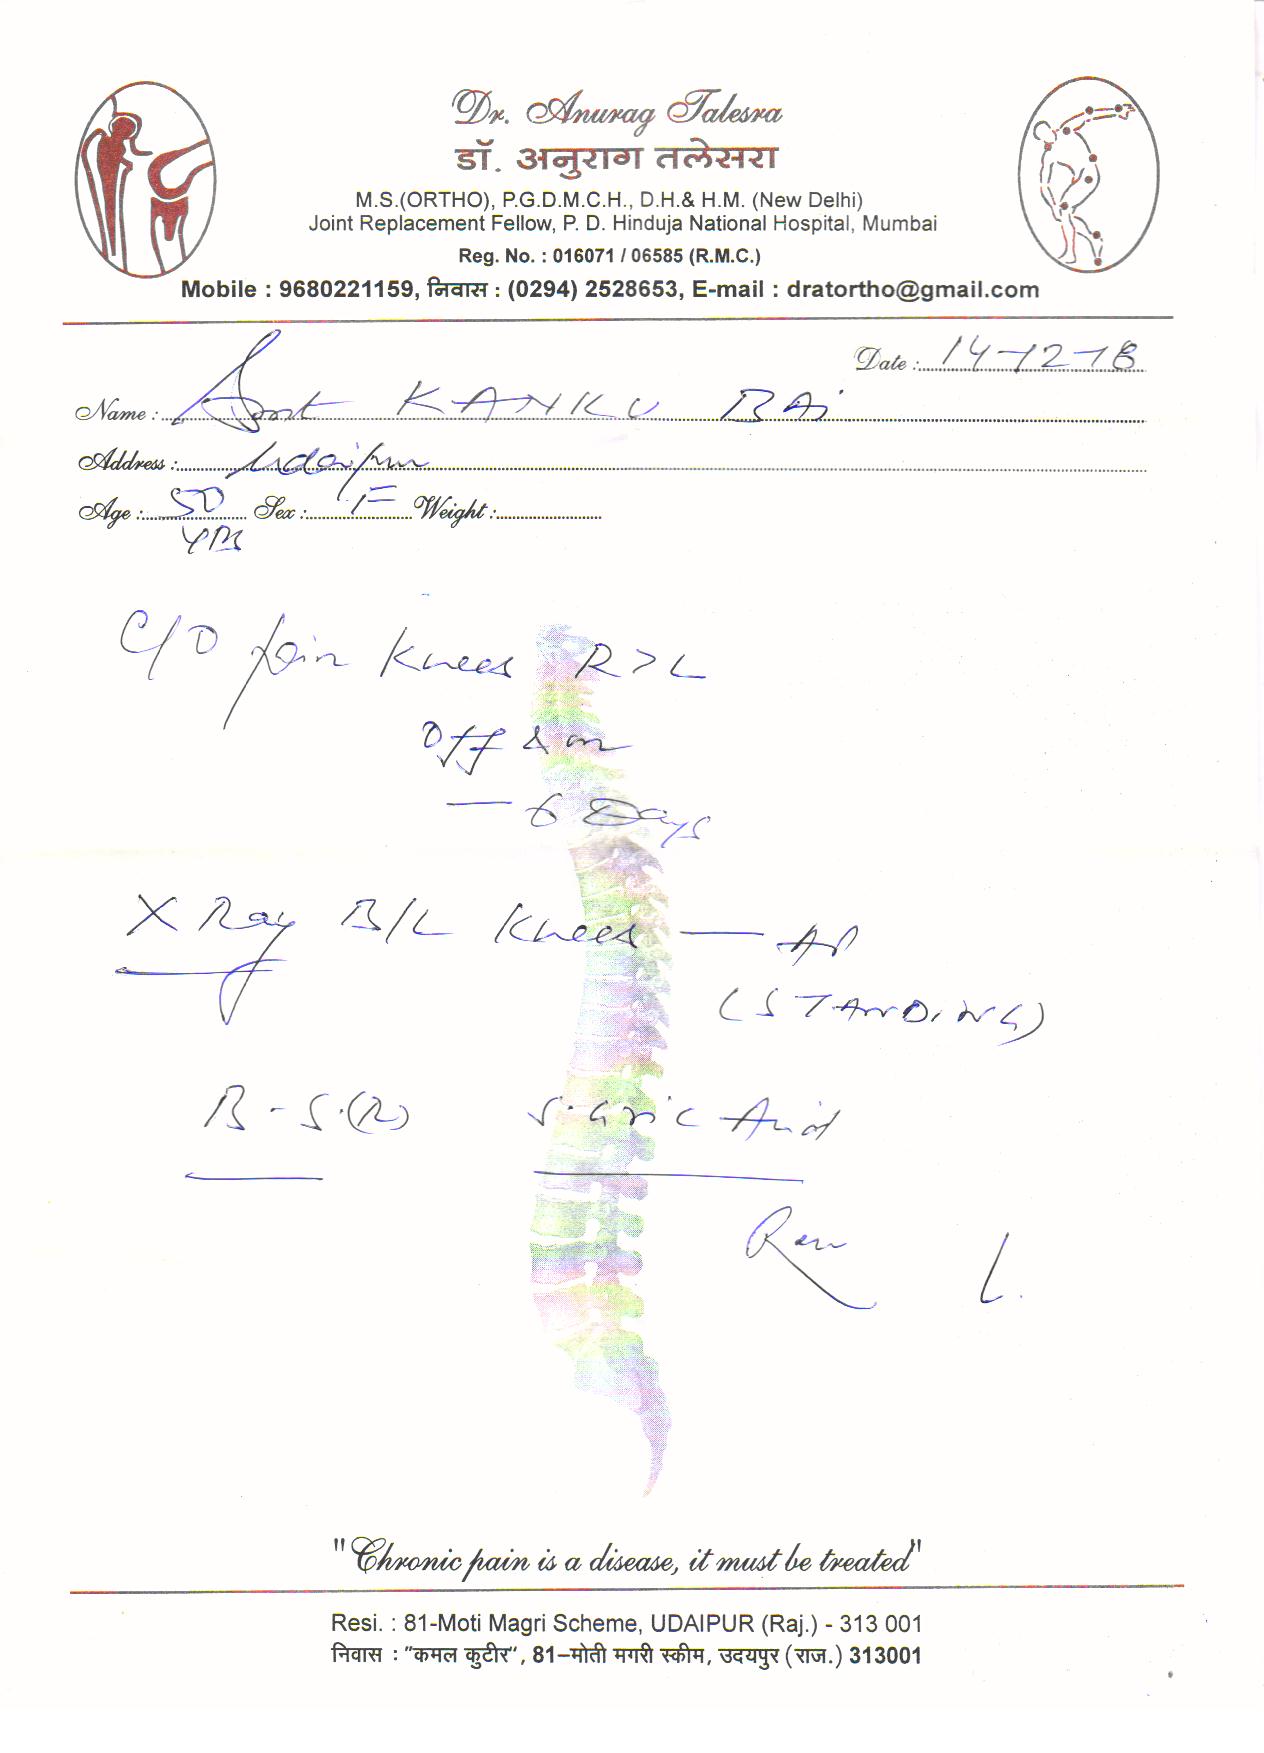 Dr. Anurag Talesra
डॉ. अनुराग तलेसरा
M.S.(ORTHO), P.G.D.M.C.H., D.H.& H.M. (New Delhi)
Joint Replacement Fellow, P. D. Hinduja National Hospital, Mumbai
Reg. No. : 016071 / 06585 (R.M.C.)
Mobile : 9680221159, निवास : (0294) 2528653, E-mail : dratortho@gmail.com
Date : 14-12-18
Name : Smt KANKU BAi
Address : Udaipur
Age : 50 Sex : F Weight :
YRS
C/O pain Knees R > L
Off & on
— 6 Days
X Ray B/L Knees — AP
(STANDING)
B-S.(R) S. Uric Acid
"Chronic pain is a disease, it must be treated"
Resi. : 81-Moti Magri Scheme, UDAIPUR (Raj.) - 313 001
निवास : "कमल कुटीर", 81–मोती मगरी स्कीम, उदयपुर (राज.) 313001